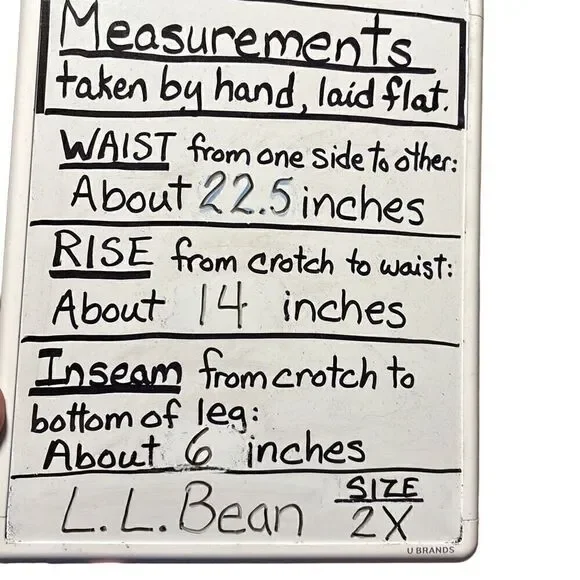 Measurements
taken by hand, laid flat.
WAIST from one side to other:
About 22.5 inches
RISE from crotch to waist:
About 14 inches
Inseam from crotch to
bottom of leg:
About 6 inches
L.L.Bean SIZE
2X
U BRANDS